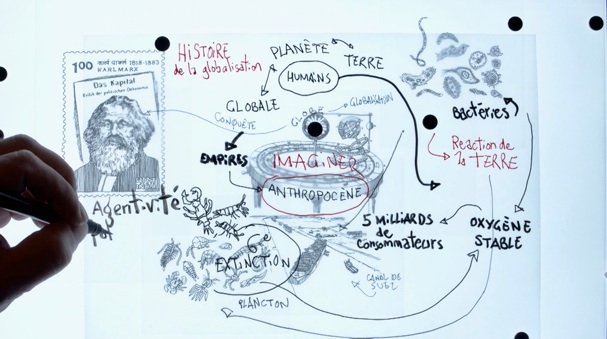 1.00 कार्ल मार्क्स 1818-1883
KARL MARX
Das Kapital
Kritik der politischen Oekonomie
HiSTOiRE
de la globalisation
PLANÈTE
TERRE
HUMAiNS
GLOBALE
GLOBE
GLOBALISATION
CONQUÊTE
EMPIRES
IMAGINER
ANTHROPOCÈNE
BACTÉRiES
Réaction de
la TERRE
5 MiLLiARDS
de
consommateurs
OXYGÈNE
STABLE
Agentivité
6e
EXTINCTION
PLANCTON
CANAL DE
SUEZ